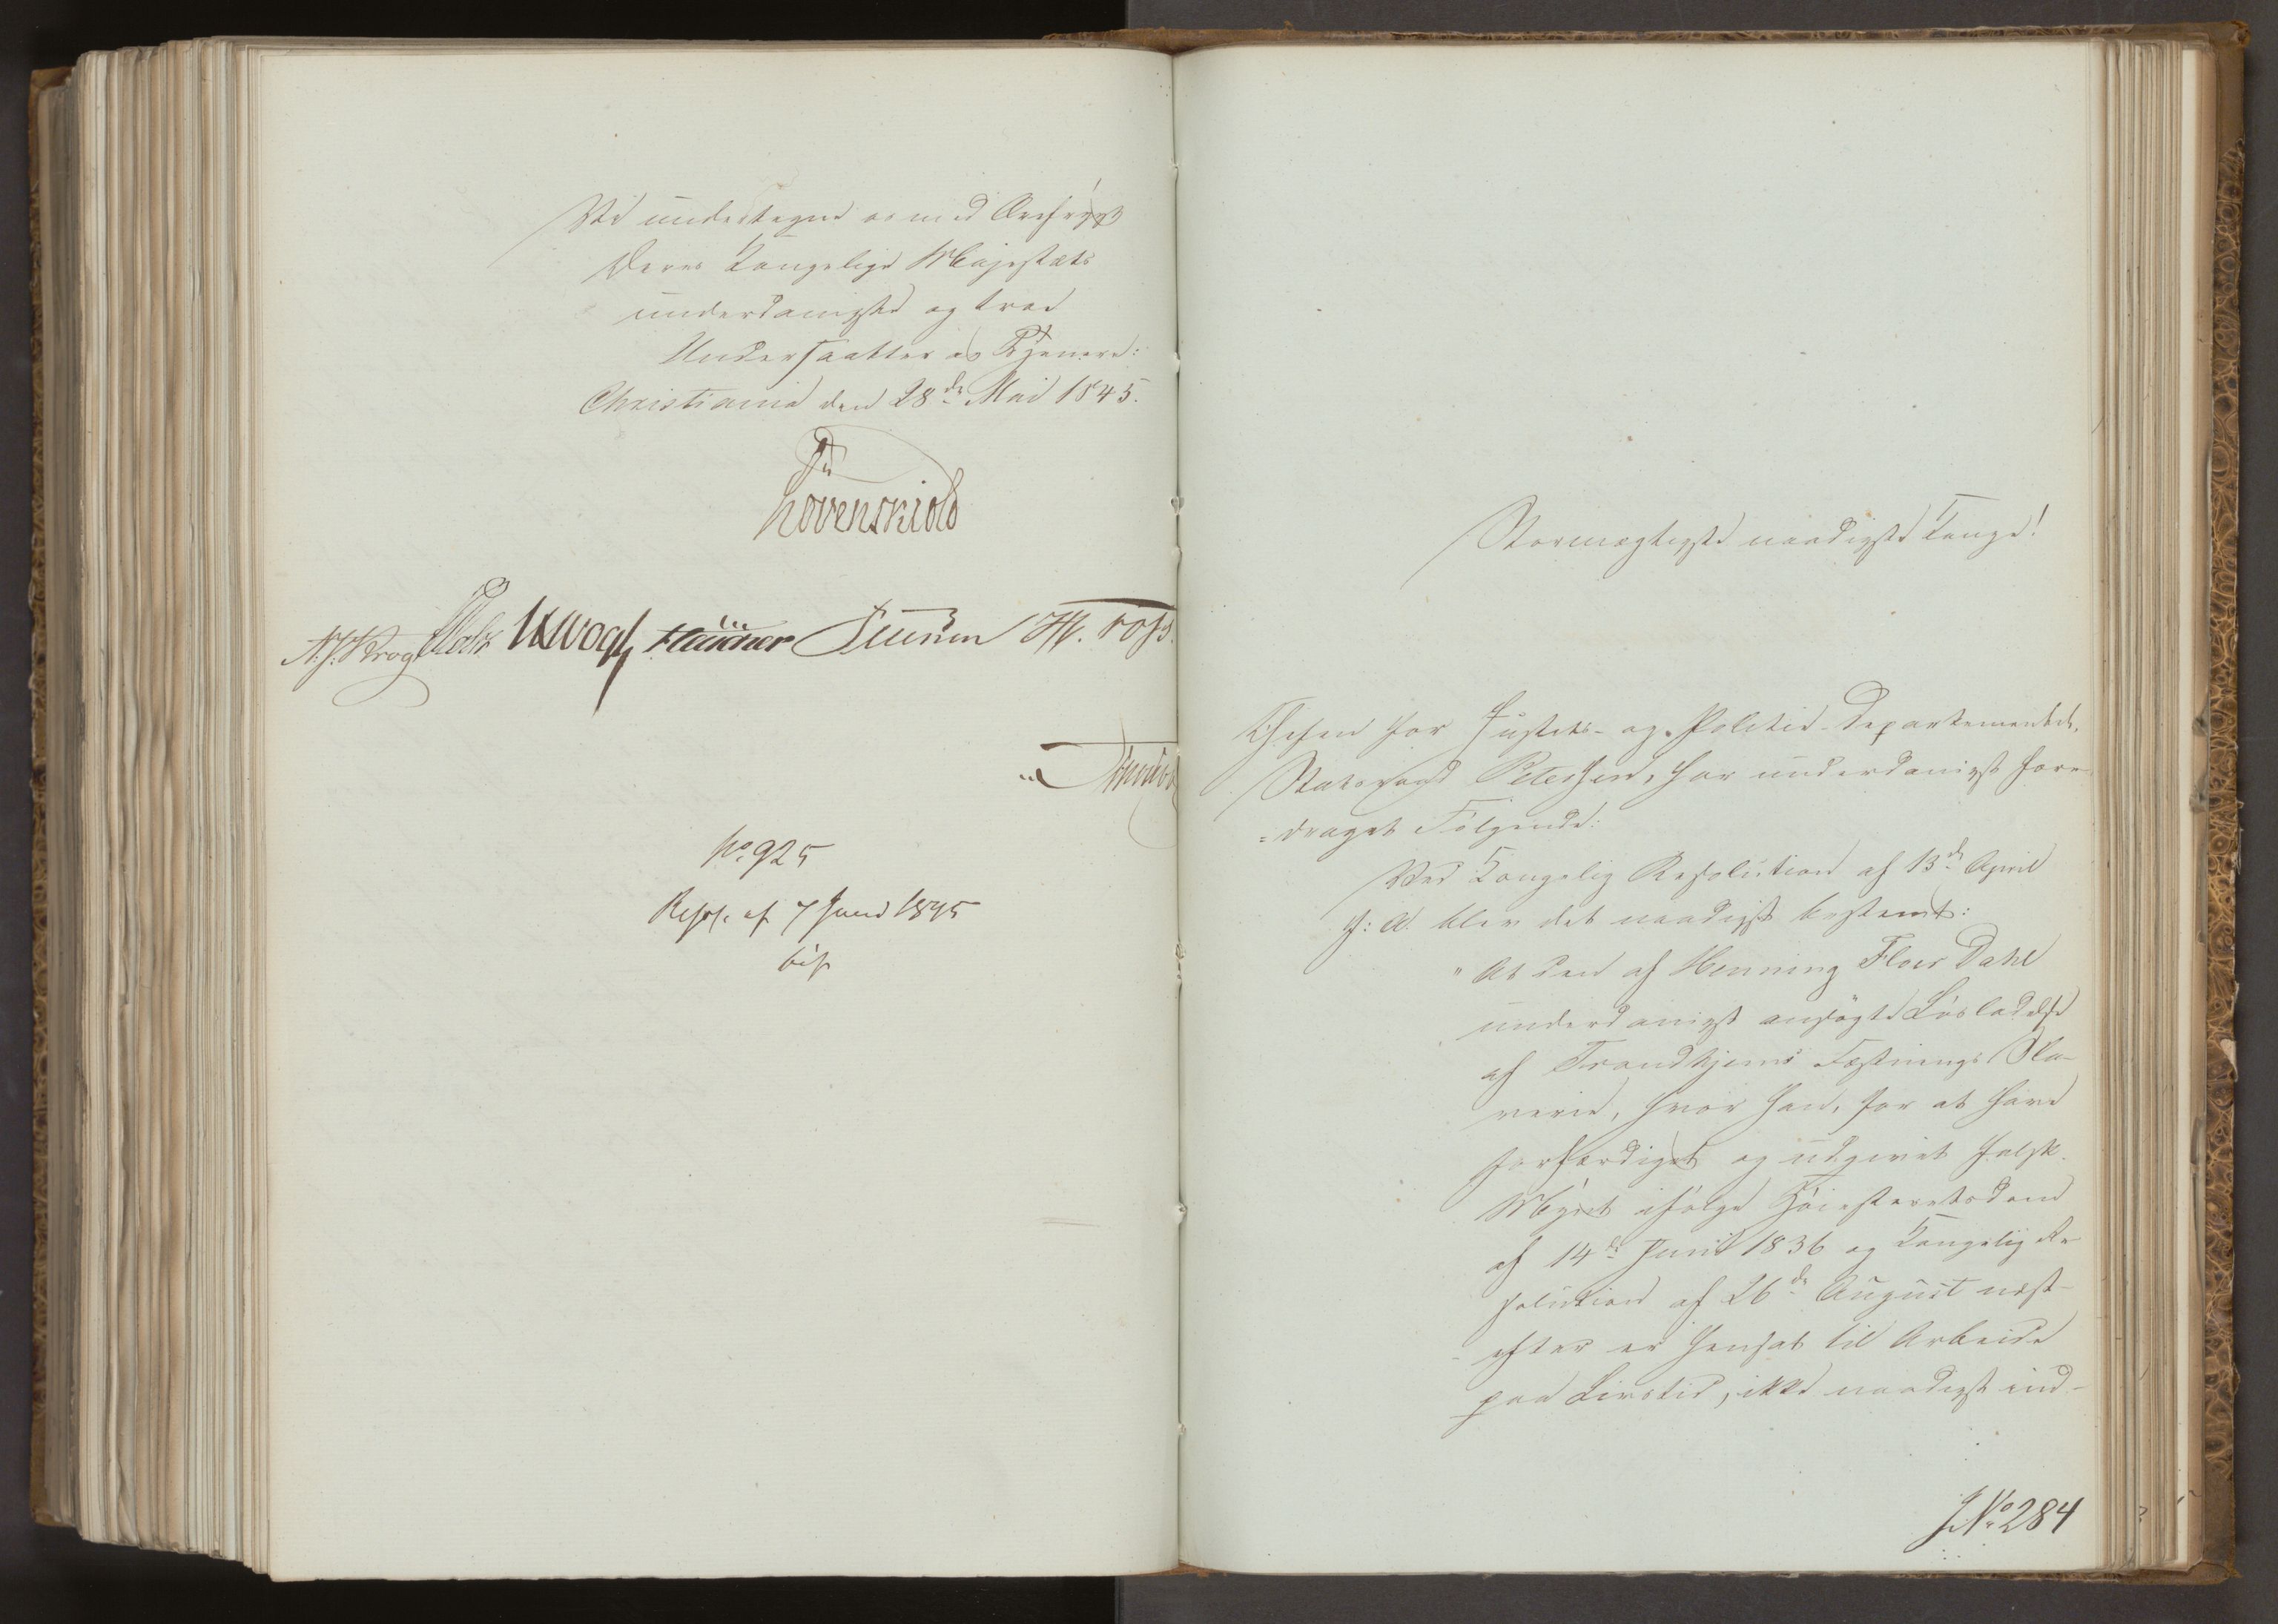 Vi undertegne os med Ærefrygt
Deres Kongelige Majestæts
underdanigste og troe
Undersaatter og Tjenere:
Christiania den 28de Mai 1845.
Løvenskiold
N. J. Krog Vogt Sibbern H. Foss.
No. 925
Resol. af 7 Juni 1845
Stormægtigste naadigste Konge!
Chefen for Justits- og Politie-Departementet,
Statsraad Petersen, har underdanigst fore-
=draget Følgende:
Ved Kongelig Resolution af 13de April
f: A. blev det naadigst bestemt:
"At den af Henning Floer Dahl
underdanigst ansøgte Løsladelse
af Trondhjems Fæstnings Sla-
verie, hvor han, for at have
forfærdiget og udgivet falsk
Mynt ifølge Høiesteretsdom
af 14de Juni 1836 og Kongelig Re-
solution af 26de August næst-
efter er hensat til Arbeide
paa Livstid, ikke naadigst ind-
J. No. 284